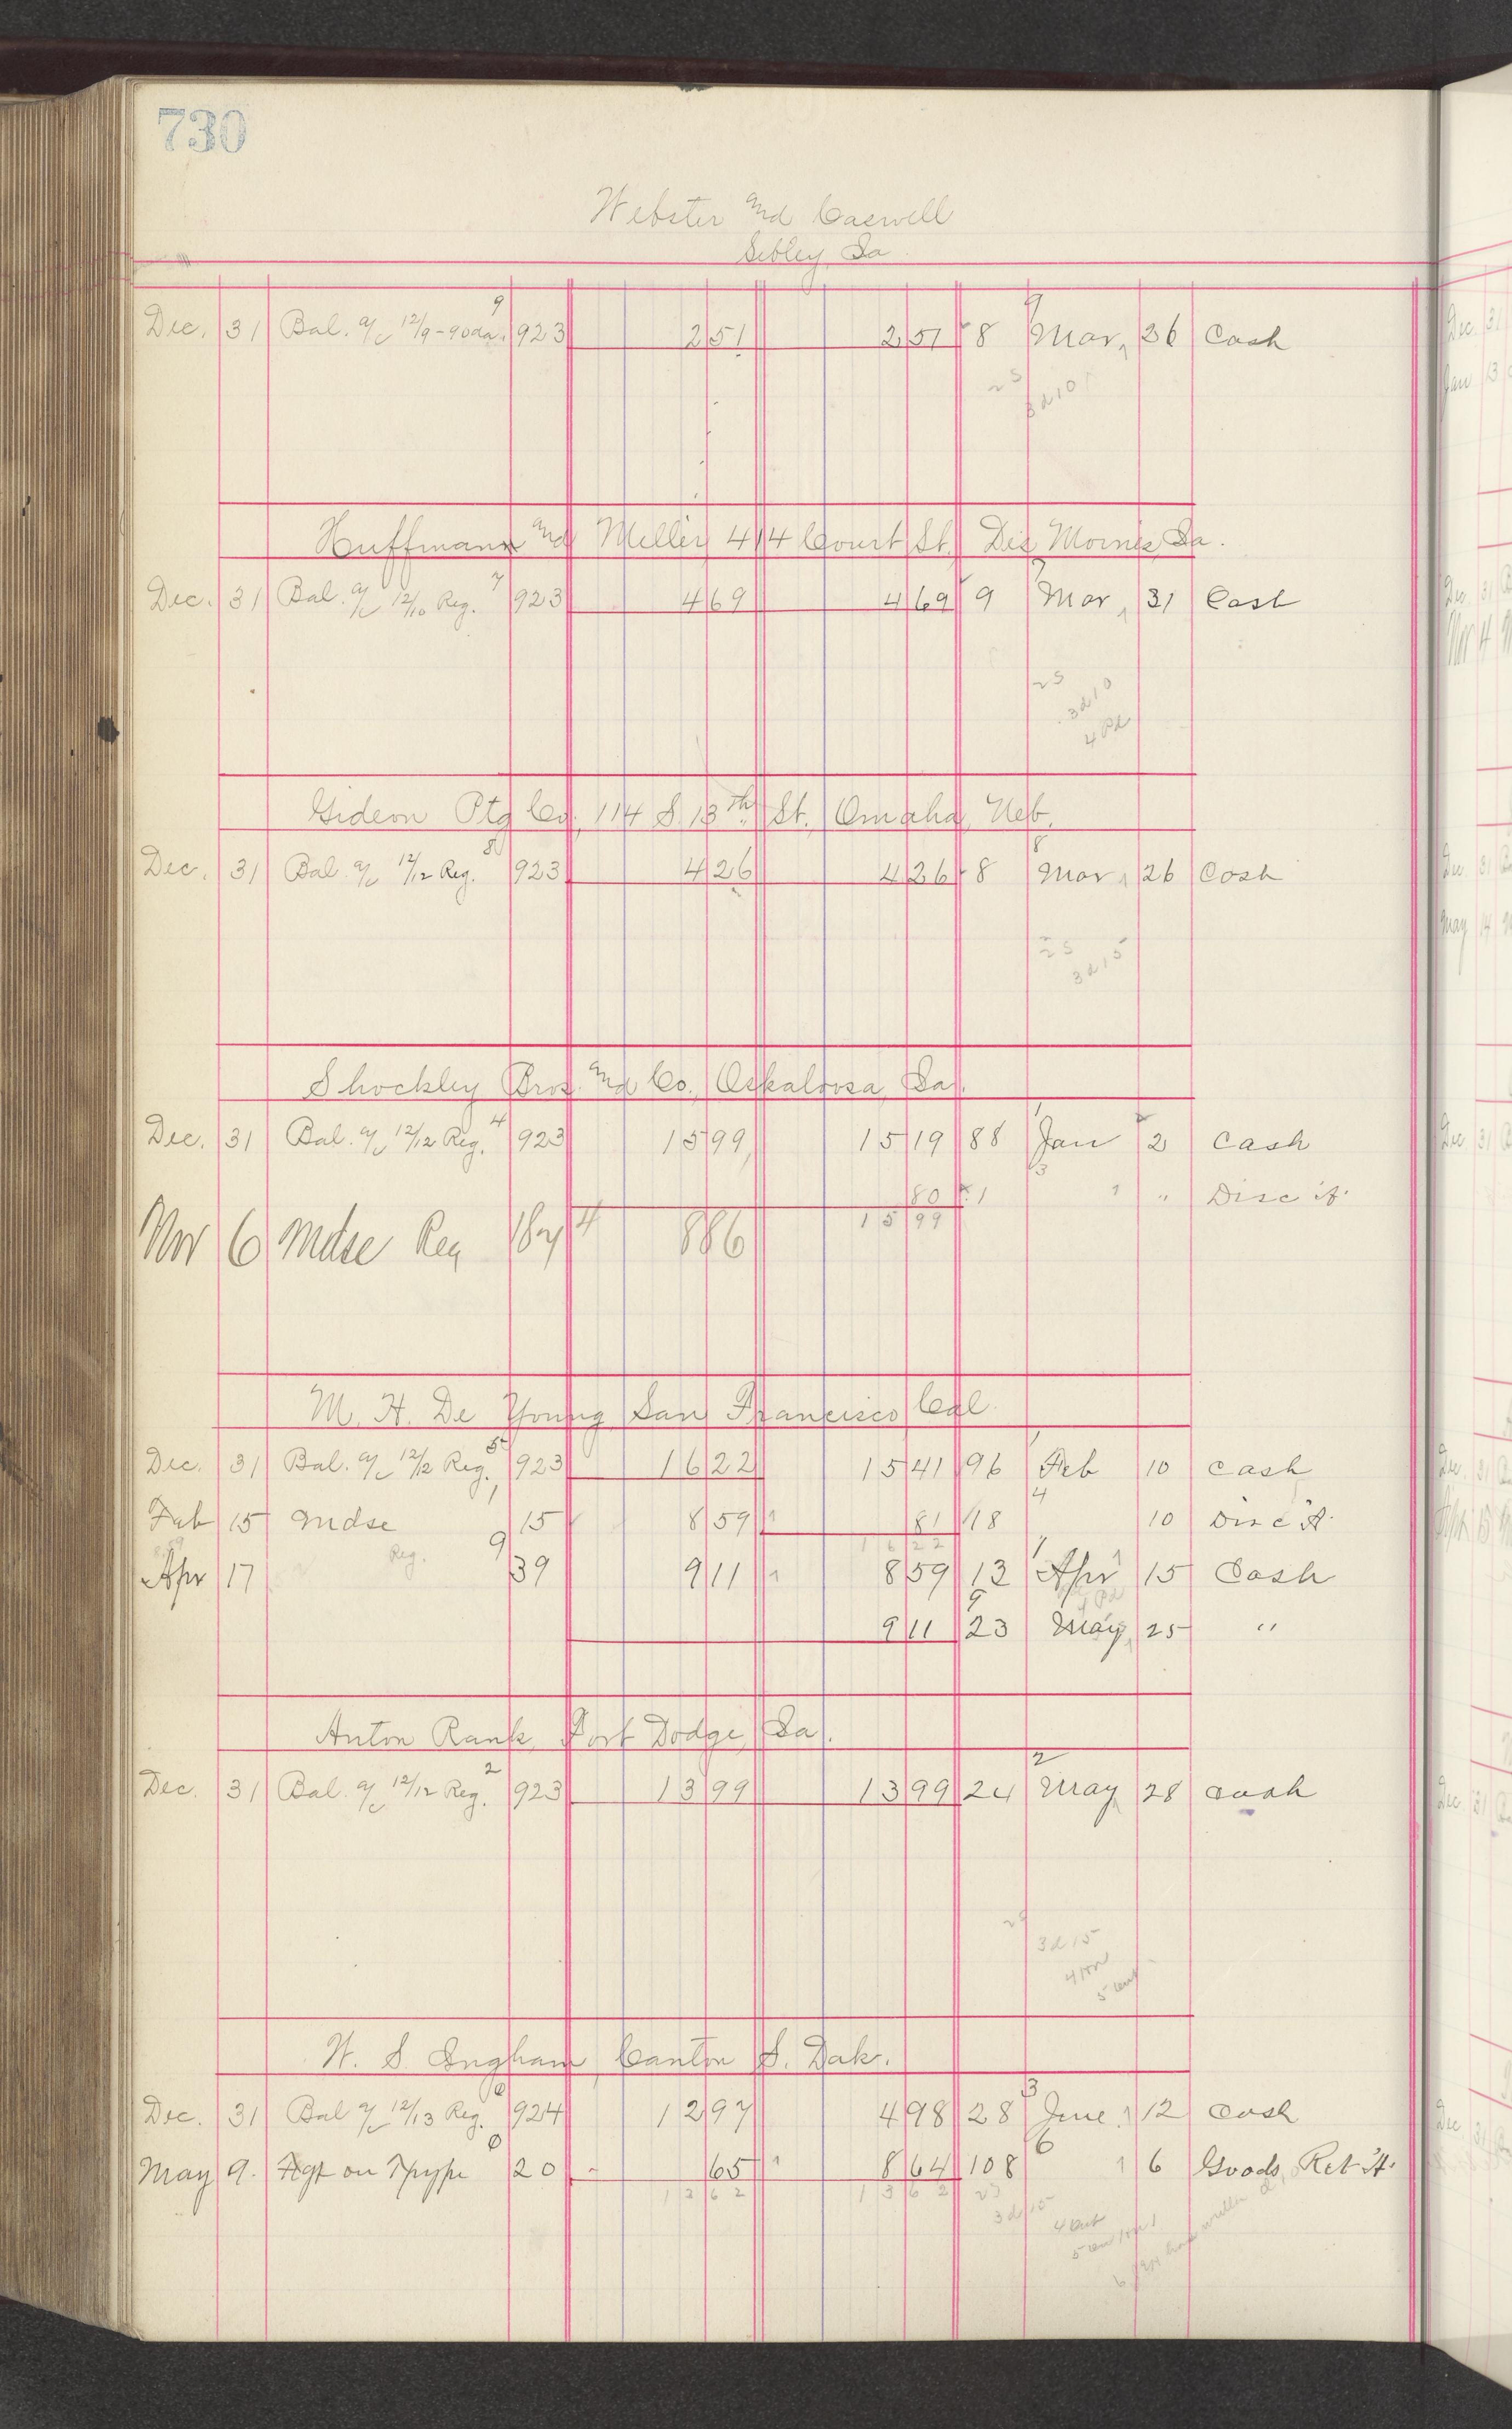 730
Webster and Caswell
Sibley, Ia
Dec. 31 Bal. a/c 12/9-90 da. 9 923 2 51 2 51 8 9 Mar, 26 Cash
25
3d 10
Huffmann and Miller 414 Court St. Des Moines, Ia.
Dec. 31 Bal. a/c 12/10 Reg. 7 923 4 69 4 69 9 7 Mar, 31 Cash
25
3d 10
4 Pd
Gideon Ptg Co, 114 S. 13th St. Omaha, Neb.
Dec. 31 Bal. a/c 12/12 Reg. 8 923 4 26 4 26 8 8 Mar 26 Cash
25
3d 15
Shockley Bros. and Co., Oskaloosa, Ia.
Dec. 31 Bal. a/c 12/12 Reg. 4 923 15 99 15 19 88 Jan 2 Cash
80 1 3 " Disc 't.
15 99
Nov 6 Mdse Reg 187 4 8 86
M. H. De Young San Francisco Cal.
Dec. 31 Bal. a/c 12/12 Reg. 5 923 16 22 15 41 96 Feb 10 Cash
Feb 15 Mdse 1 15 8 59 81 18 4 10 Disc't.
16 22
Apr 17 Reg. 9 39 9 11 8 59 13 Apr 15 Cash
9 11 23 9 May 25 "
Anton Rank, Fort Dodge, Ia.
Dec. 31 Bal. a/c 12/12 Reg. 2 923 13 99 13 99 24 2 May 28 Cash
3d 15
W. S. Ingham Canton S. Dak.
Dec. 31 Bal a/c 12/13 Reg. 6 924 12 97 4 98 28 3 June 12 Cash
May 9. Agt on Type 0 20 65 8 64 108 6 6 Goods Ret't.
13 62 13 62 25
3d 15